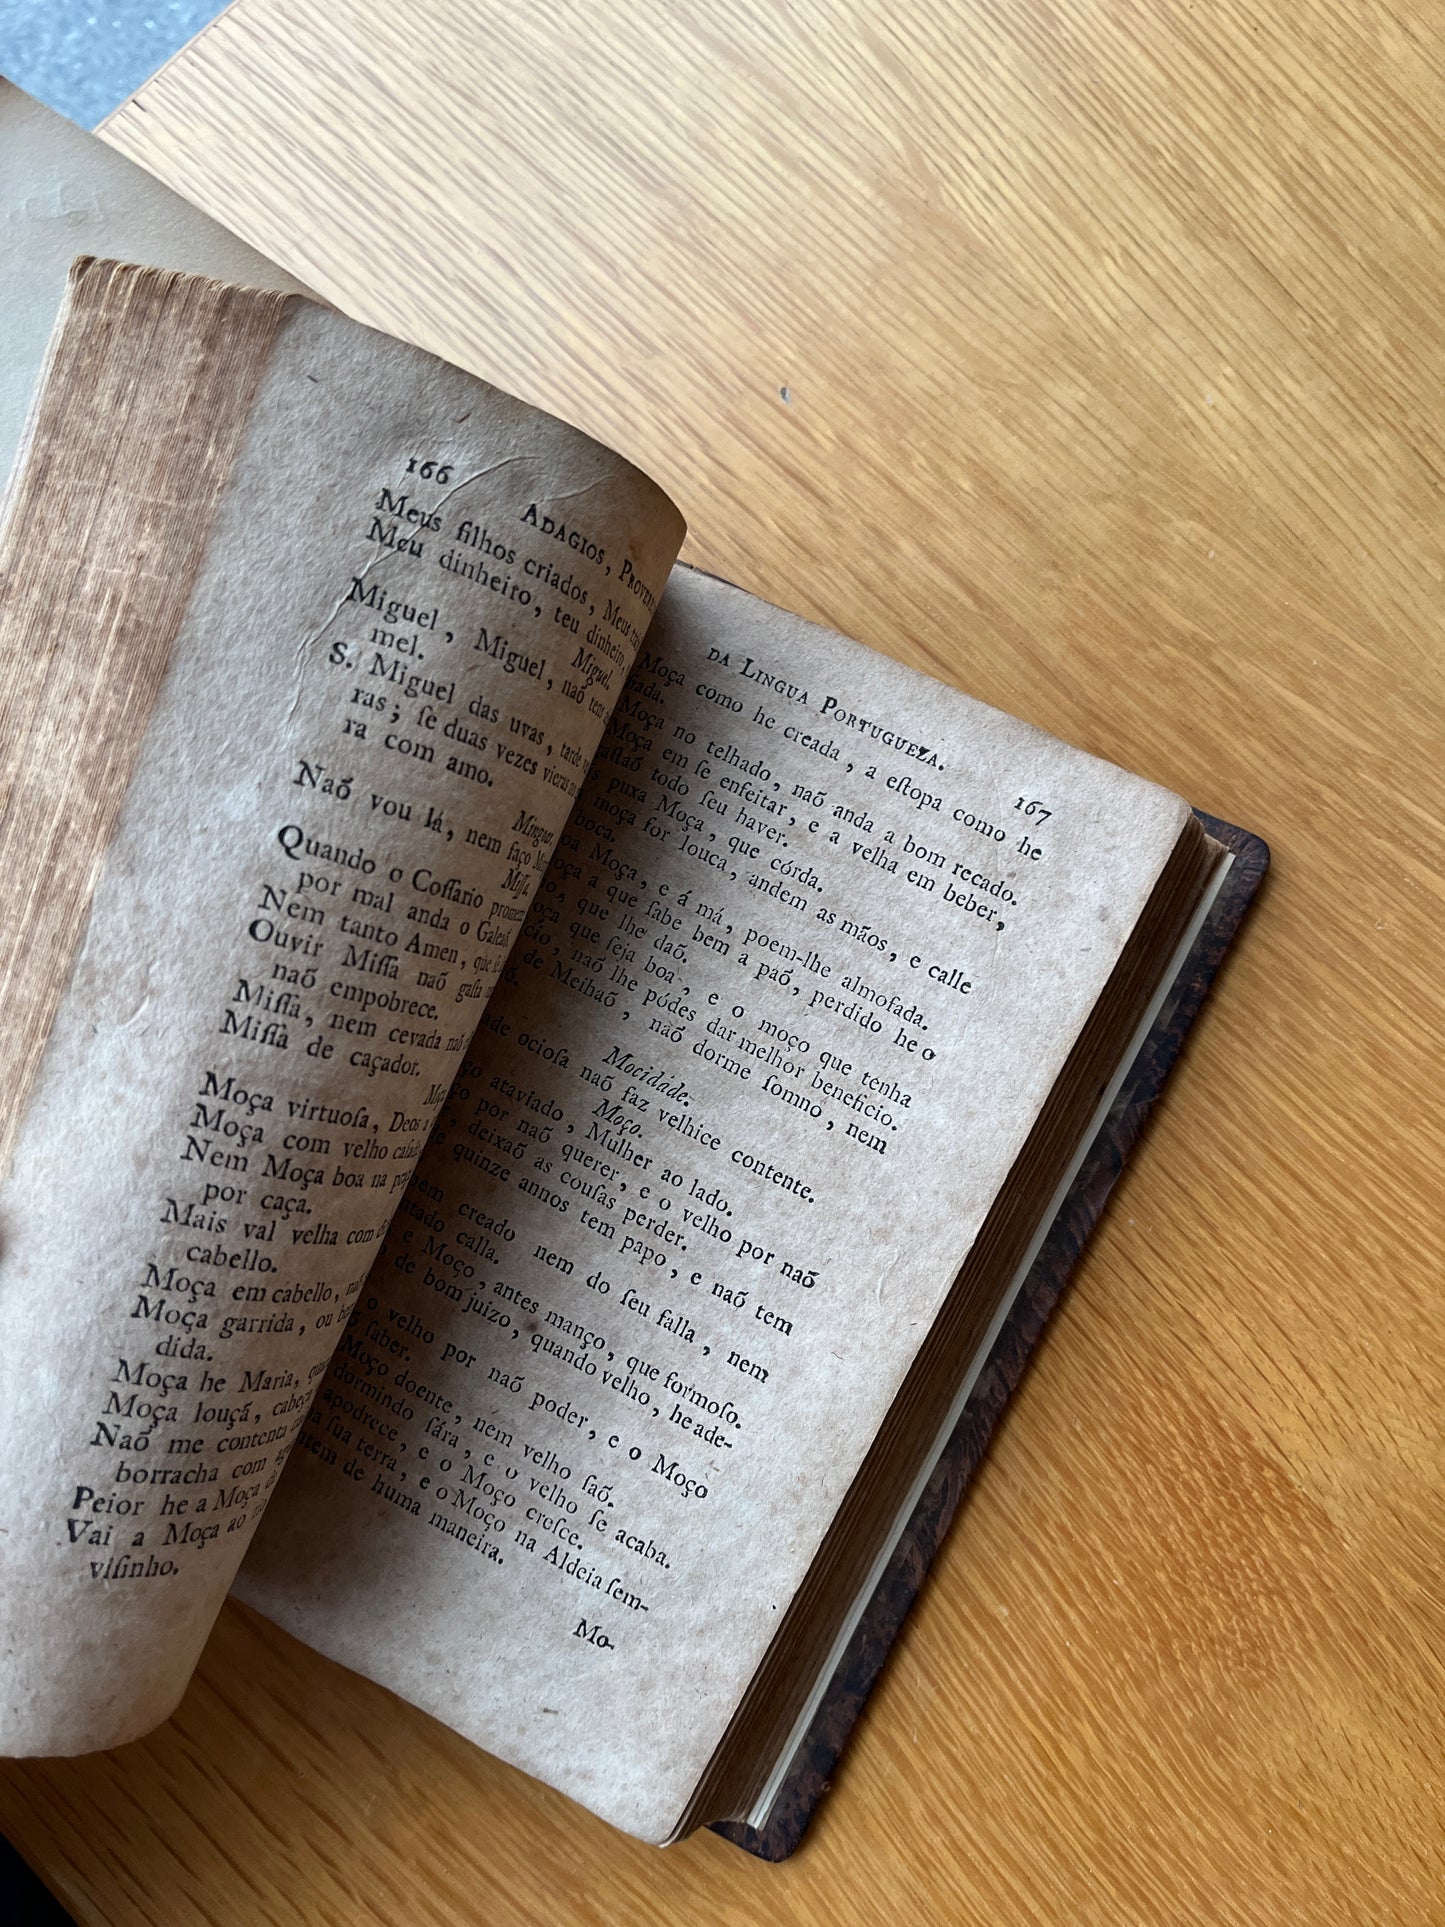 166
ADAGIOS, PROVER
Meus filhos criados, Meus
Meu dinheiro, teu dinheiro,
Miguel.
Miguel, Miguel, naõ tens
mel.
S. Miguel das uvas, tarde
ras; ſe duas vezes vieras no
ra com amo.
Mingua,
Naõ vou lá, nem faço
Miſſa.
Quando o Coſſario promete
por mal anda o Galeaõ
Nem tanto Amen, que ſe
Ouvir Miſſa naõ gaſta
naõ empobrece.
Miſſa, nem cevada naõ
Miſſa de caçador.
Moça
Moça virtuoſa, Deos a
Moça com velho caſada
Nem Moça boa na
por caça.
Mais val velha com
cabello.
Moça em cabello, naõ
Moça garrida, ou
dida.
Moça he Maria,
Moça louçã, cabeça
Naõ me contenta
borracha com
Peior he a Moça de
Vai a Moça ao
viſinho.
DA LINGUA PORTUGUEZA.
167
Moça como he creada, a eſtopa como he
fiada.
Moça no telhado, naõ anda a bom recado.
Moça em ſe enfeitar, e a velha em beber,
gaſtaõ todo ſeu haver.
puxa Moça, que córda.
moça for louca, andem as mãos, e calle
boca.
Moça, e á má, poem-lhe almofada.
a que ſabe bem a paõ, perdido he o
que lhe daõ.
que ſeja boa, e o moço que tenha
naõ lhe pódes dar melhor beneficio.
de Meihaõ, naõ dorme ſomno, nem
Mocidade.
ocioſa naõ faz velhice contente.
Moço.
ataviado, Mulher ao lado.
por naõ querer, e o velho por naõ
deixaõ as couſas perder.
quinze annos tem papo, e naõ tem
creado nem do ſeu falla, nem
calla.
e Moço, antes manço, que formoſo.
de bom juizo, quando velho, he ade-
o velho por naõ poder, e o Moço
ſaber.
Moço doente, nem velho ſaõ.
dormindo ſára, e o velho ſe acaba.
apodrece, e o Moço creſce.
ſua terra, e o Moço na Aldeia ſem-
de huma maneira.
Mo-